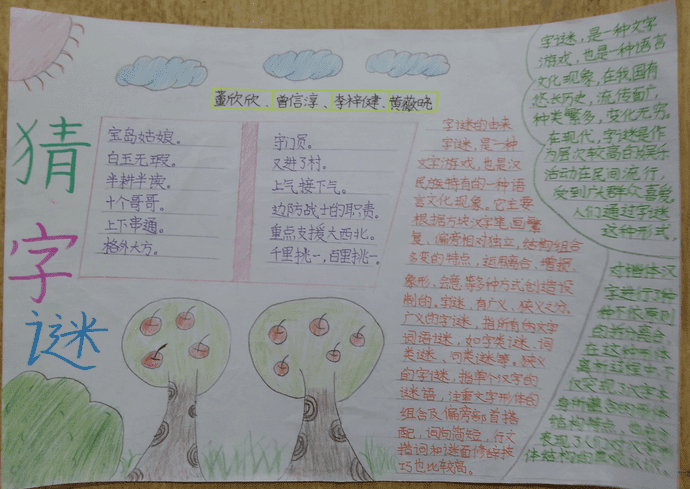 猜
字
谜
董欣欣、曾信淳、李梓健、黄薇
宝岛姑娘。
白玉无瑕。
半耕半读。
十个哥哥。
上下串通。
格外大方。
守门员。
又进了村。
上气接下气。
边防战士的职责。
重点支援大西北。
千里挑一，百里挑一。
字谜的由来
字谜，是一种
文字游戏，也是汉
民族特有的一种语
言文化现象。它主要
根据方块汉字笔画繁
复、偏旁相对独立，结构组合
多变的特点，运用离合、增损、
象形、会意等多种方式创造设
制的。字谜，有广义、狭义之分。
广义的字谜，指所有的文字
词语谜，如字类谜、词
类谜、句类谜等。狭义
的字谜，指单个汉字的
谜语，注重文字形体的
组合及偏旁部首搭
配，词句简短，行文
措词和谜面修辞技
巧也比较高。
字谜，是一种文字
游戏，也是一种语言
文化现象。在我国有
悠长历史，流传面广，
种类繁多，变化无穷。
在现代，字谜是作
为层次较高的娱乐
活动在民间流行，
受到广大群众喜爱。
人们通过字谜
这种形式，
对楷体汉
字进行了各
种下依原则
的拆拼离合，
在这种形体
离析过程中，不
仅发现了汉字本
身所蕴含的形体
结构特点，也
表现了人们对汉字形
体结构的